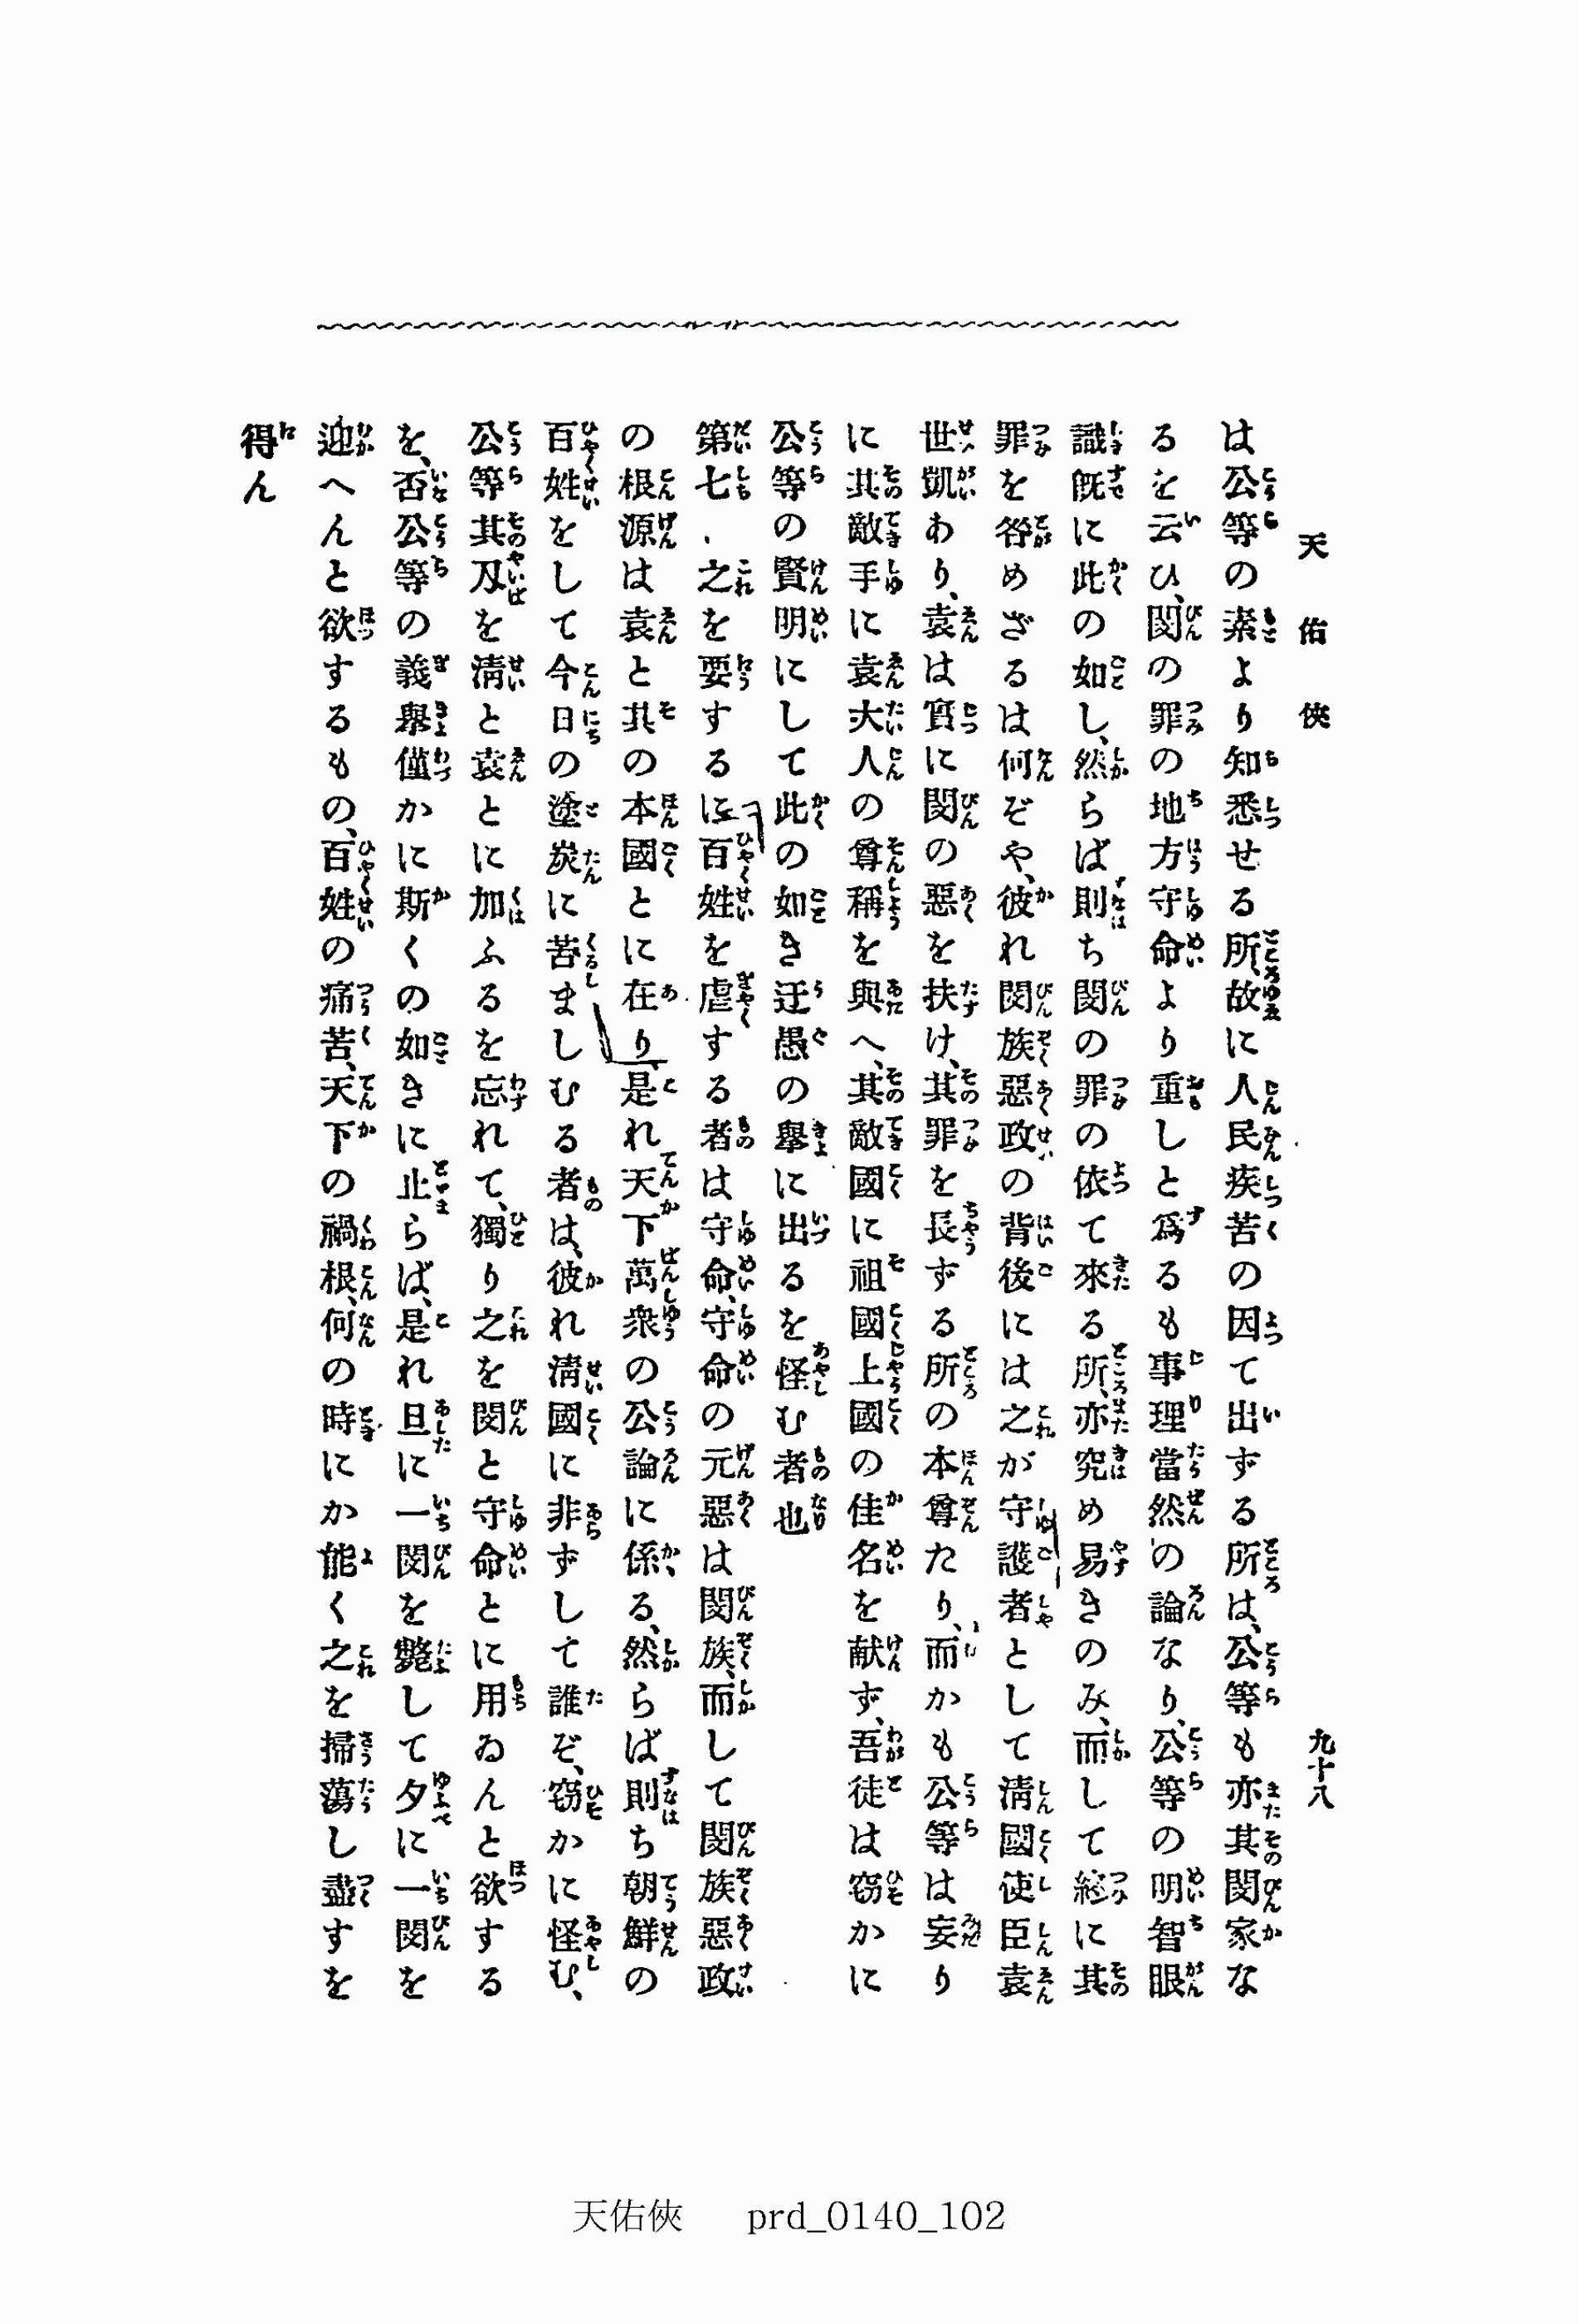 天佑俠
九十八
は公等の素より知悉せる所、故に人民疾苦の因て出ずる所は、公等も亦其閔家な
るを云ひ、閔の罪の地方守命より重しと爲るも事理當然の論なり、公等の明智眼
識既に此の如し、然らば則ち閔の罪の依て來る所、亦究め易きのみ、而して終に其
罪を咎めざるは何ぞや、彼れ閔族惡政の背後には之が守護者として淸國使臣袁
世凱あり、袁は實に閔の惡を扶け、其罪を長ずる所の本尊たり、而かも公等は妄り
に其敵手に袁大人の尊稱を與へ、其敵國に祖國上國の佳名を献ず、吾徒は窃かに
公等の賢明にして此の如き迂愚の擧に出るを怪む者也
第七、之を要するに百姓を虐する者は守命、守命の元惡は閔族、而して閔族惡政
の根源は袁と其の本國とに在り、是れ天下萬衆の公論に係る、然らば則ち朝鮮の
百姓をして今日の塗炭に苦ましむる者は、彼れ淸國に非ずして誰ぞ、窃かに怪む、
公等其刄を淸と袁とに加ふるを忘れて、獨り之を閔と守命とに用ゐんと欲する
を、否公等の義擧僅かに斯くの如きに止らば、是れ旦に一閔を斃して夕に一閔を
迎へんと欲するもの、百姓の痛苦、天下の禍根、何の時にか能く之を掃蕩し盡すを
得ん
天佑俠 prd_0140_102